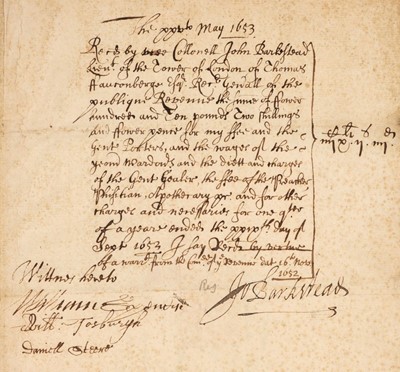 The xxvth May 1653
Recd by mee Collonell John Barkstead
Lieut of the Tower of London of Thomas
Fauconberge Esqr Recr Genrall of the
publique Revenue the summe of ffower
hundred and Ten pounds Two shillings
and ffower pence for my ffee and the
Gent Porters, and the wages of the
yeom Wardours, and the diett and charges
of the Gent Goaler, the ffee of the Preacher
Phisitian Apothecary &c and for other
charges and necessaries for one qter
of a yeare ended the xxvth day of
1653 I say Recd by vertue
of a warrt from the Comee of ye Revenue dat 16th Novr
1652
li s d
iiijcx. ij. iiij.
Wittnes hereto
Jo Barkstead
Will: Tosburgh
Daniell Steere